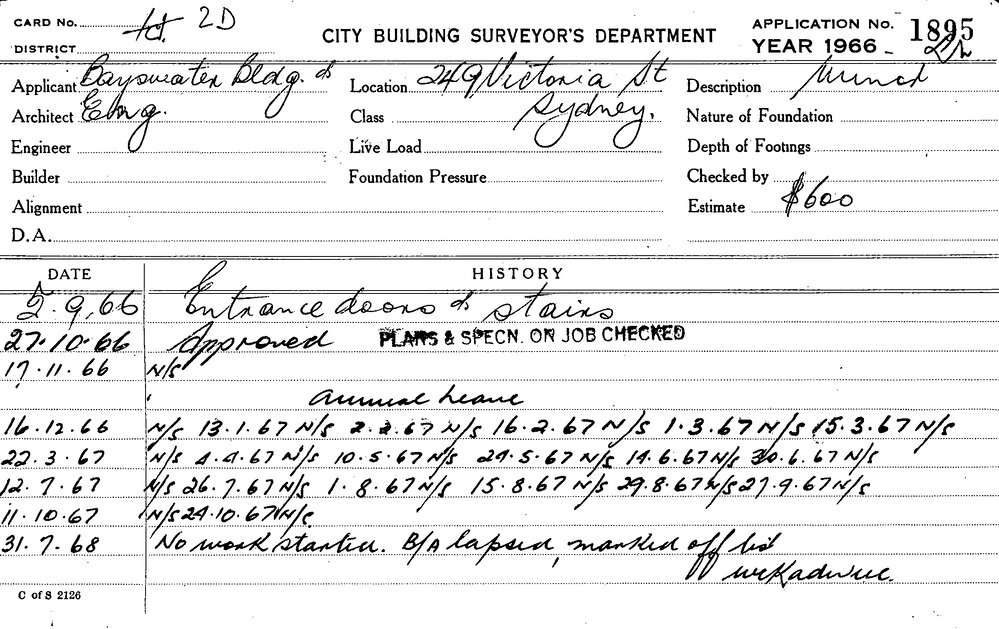 CARD No. 2D
DISTRICT
CITY BUILDING SURVEYOR'S DEPARTMENT
APPLICATION No. 1895
YEAR 1966
Applicant Bayswater Bldg. &
Location 249 Victoria St
Description
Architect Eng.
Class Sydney.
Nature of Foundation
Engineer
Live Load
Depth of Footings
Builder
Foundation Pressure
Checked by
Alignment
Estimate $600
D.A.
DATE HISTORY
2.9.66 Entrance doors & stairs
27.10.66 Approved PLANS & SPECN. ON JOB CHECKED
17.11.66 N/S
Annual Leave
16.12.66 N/S 13.1.67 N/S 2.2.67 N/S 16.2.67 N/S 1.3.67 N/S 15.3.67 N/S
22.3.67 N/S 4.4.67 N/S 10.5.67 N/S 24.5.67 N/S 14.6.67 N/S 30.6.67 N/S
12.7.67 N/S 26.7.67 N/S 1.8.67 N/S 15.8.67 N/S 29.8.67 N/S 27.9.67 N/S
11.10.67 N/S 24.10.67 N/S
31.7.68 No work started. B/A lapsed, marked off list
C of S 2126